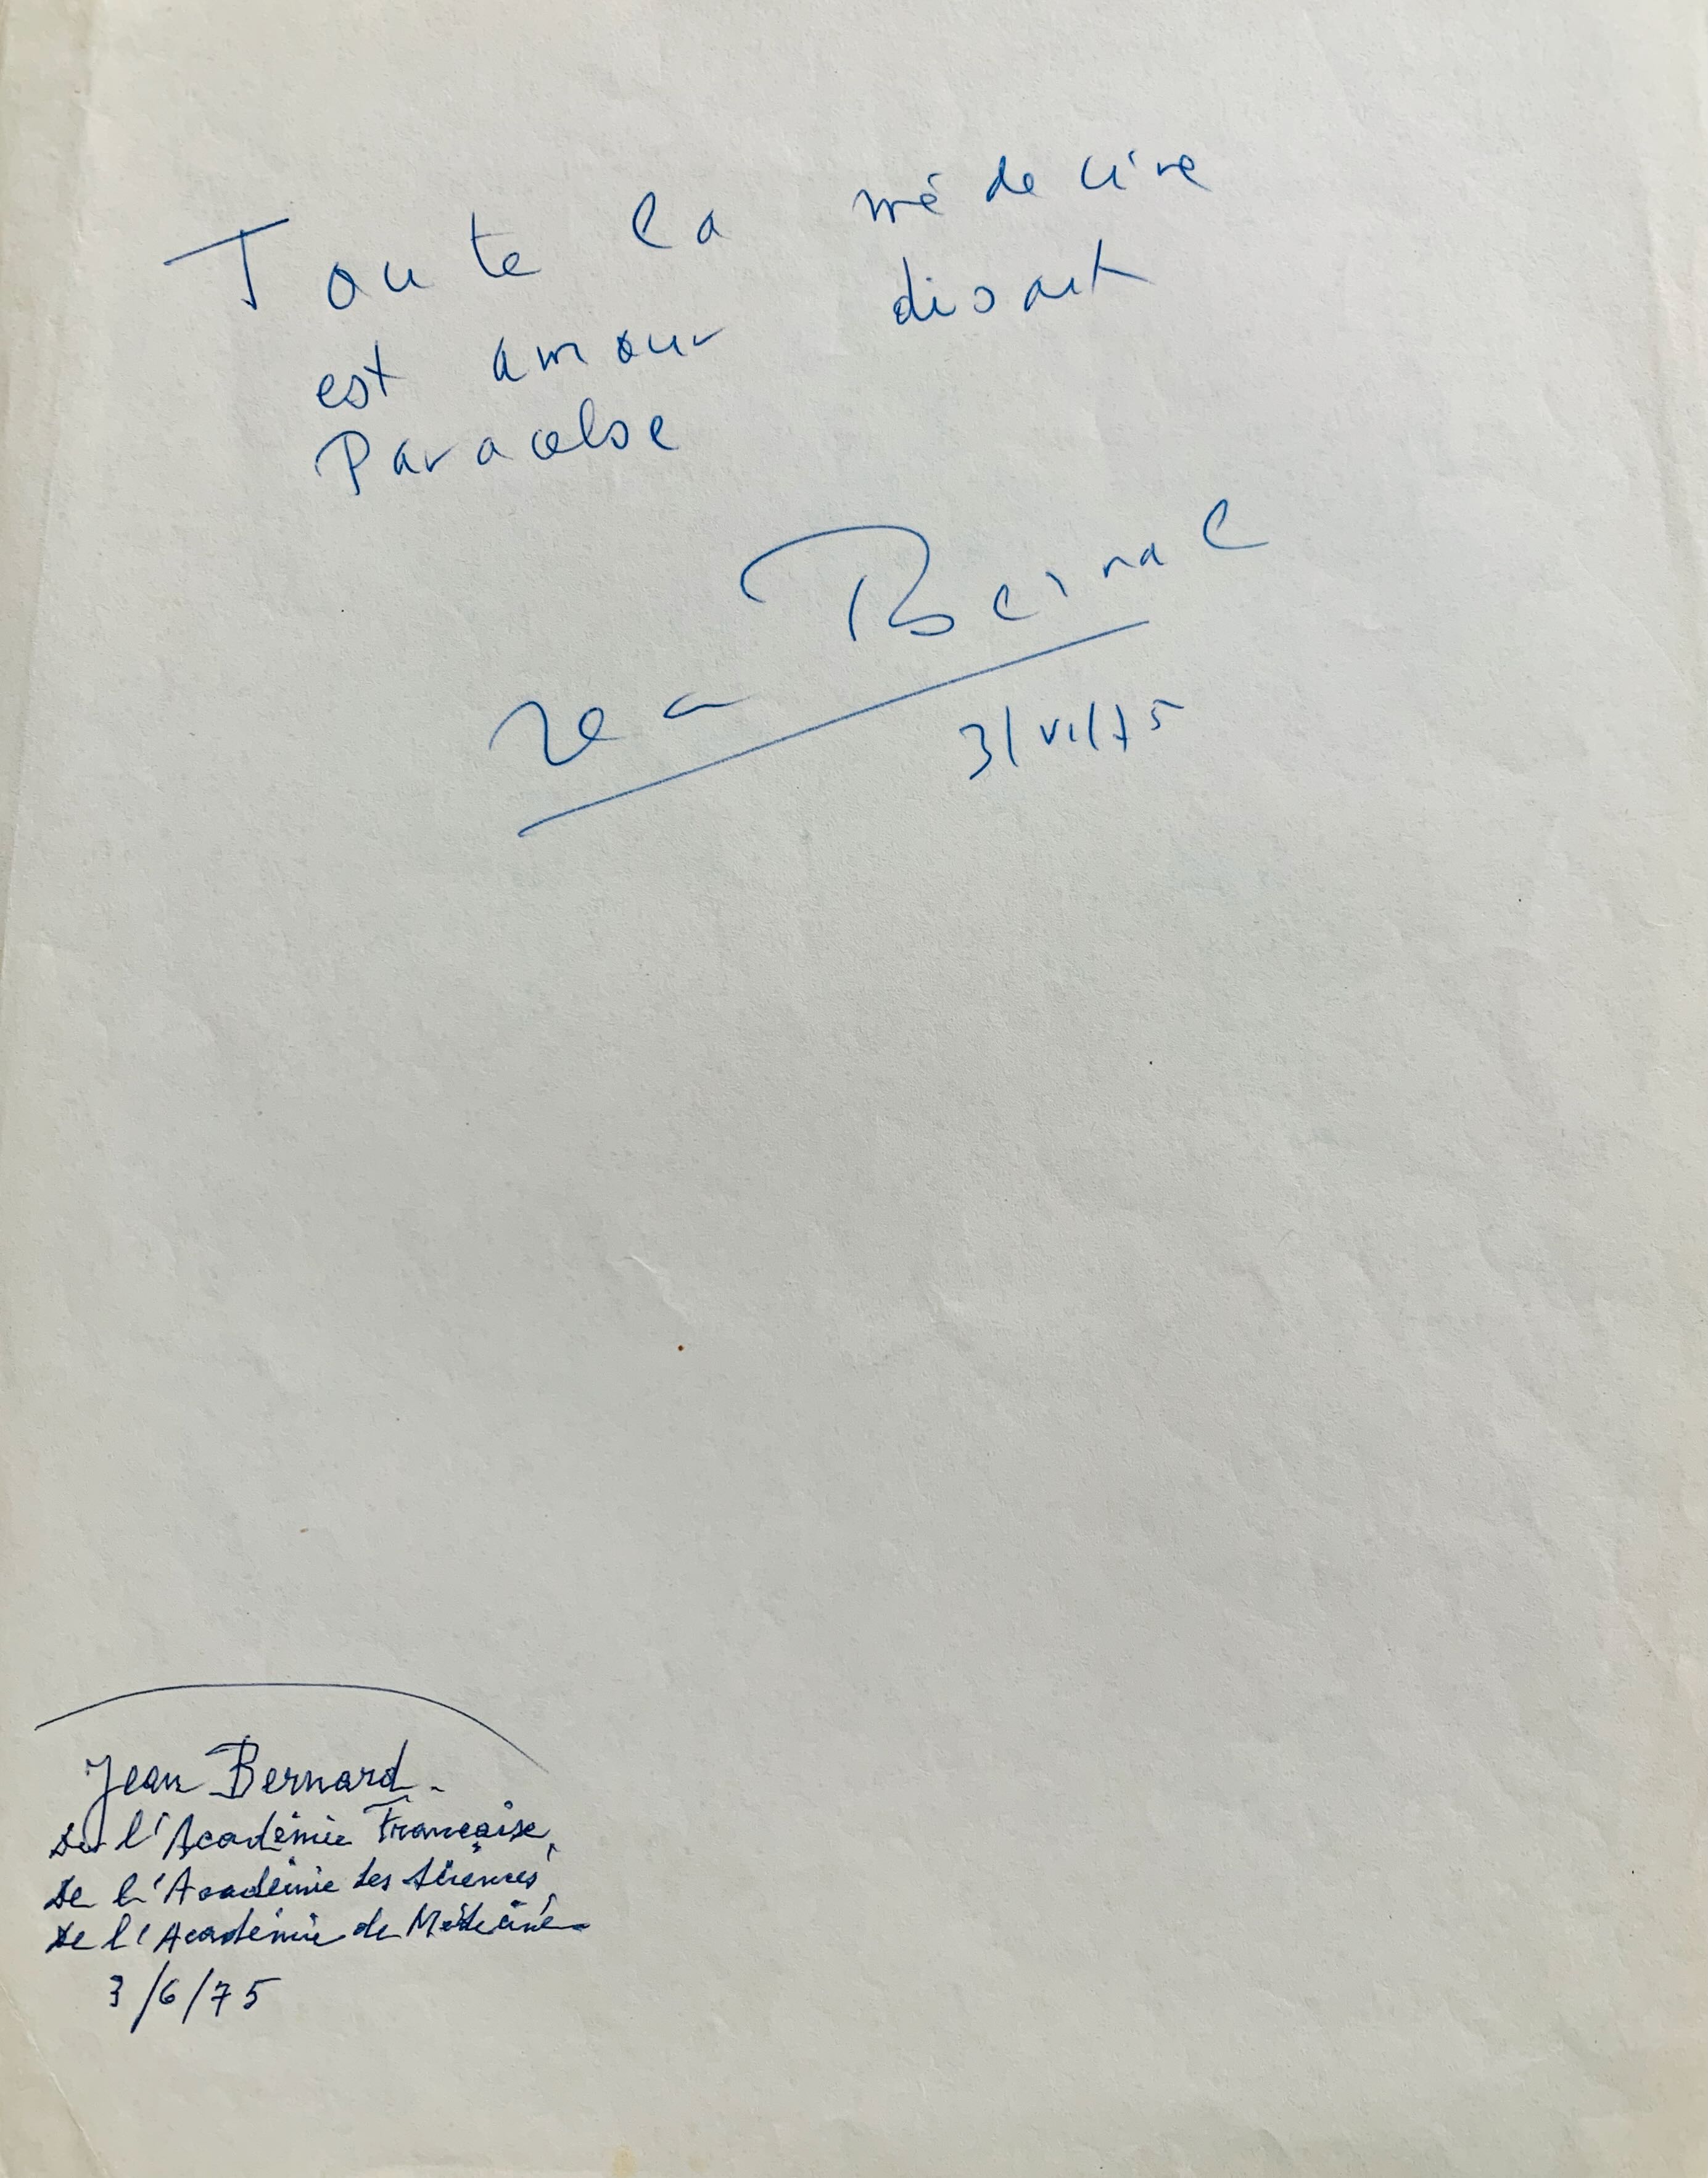 Toute la médecine
est amour disait
Paracelse
Jean Bernard
3/VI/75
Jean Bernard -
De l'Académie Française,
De l'Académie des Sciences,
De l'Académie de Médecine
3/6/75